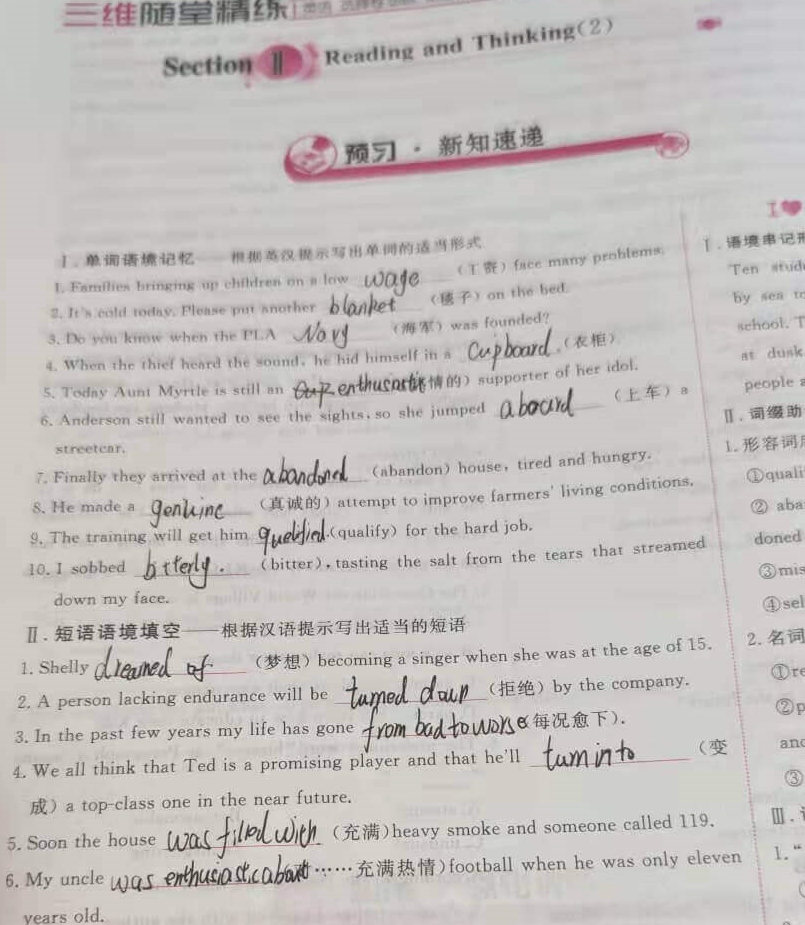 三维随堂精练
Section Ⅱ Reading and Thinking(2)
预习·新知速递
Ⅰ.单词语境记忆——根据英汉提示写出单词的适当形式
1. Families bringing up children on a low wage (工资) face many problems.
2. It's cold today. Please put another blanket (毯子) on the bed.
3. Do you know when the PLA Navy (海军) was founded?
4. When the thief heard the sound, he hid himself in a Cupboard.(衣柜)
5. Today Aunt Myrtle is still an enthusiastic 情的) supporter of her idol.
6. Anderson still wanted to see the sights, so she jumped aboard (上车) a
streetcar.
7. Finally they arrived at the abandoned (abandon) house, tired and hungry.
8. He made a genuine (真诚的) attempt to improve farmers' living conditions.
9. The training will get him qualified.(qualify) for the hard job.
10. I sobbed bitterly. (bitter), tasting the salt from the tears that streamed
down my face.
Ⅱ.短语语境填空——根据汉语提示写出适当的短语
1. Shelly dreamed of. (梦想) becoming a singer when she was at the age of 15.
2. A person lacking endurance will be turned down (拒绝) by the company.
3. In the past few years my life has gone from bad to worse 每况愈下).
4. We all think that Ted is a promising player and that he'll turn into (变
成) a top-class one in the near future.
5. Soon the house was filled with (充满)heavy smoke and someone called 119.
6. My uncle was enthusiastic about ……充满热情)football when he was only eleven
years old.
Ⅰ
Ⅰ.语境串记
Ten stud
by sea to
school. T
at dusk
people a
Ⅱ.词缀助
1.形容词
①quali
②aba
doned
③mis
④sel
2.名词
①re
②p
and
③
Ⅲ.
1."